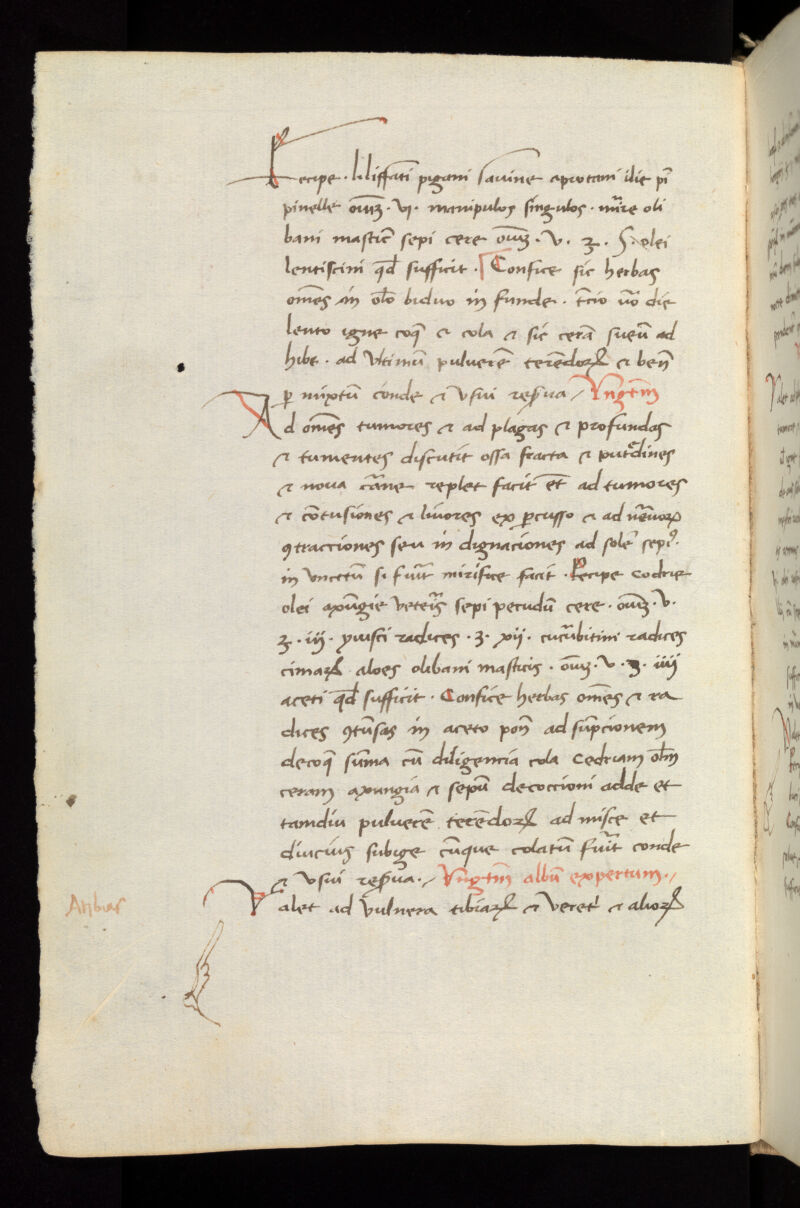 Recipe · liliffāti pigani savine aprotani ilie pī
pinelle om̄ · vi · manipulos singulos · mirre oli
bani masticˢ sepi cere om̄ · v · ʒ · olei
lentiscini qd̄ sufficit · Confice sic herbas
om̄es in ol̄o biduo in funde · t̄cio v̄o die
lento igne coq̄ ⁊ cola ⁊ sic cerā sueū ad
hibe · ad ultimū pulverē terēdoꝝ ⁊ ben̄
ꝑ mixtū conde ⁊ usui res̄ua / Vngt̄m
Ad om̄es tumores ⁊ ad plagas ⁊ profundas
⁊ tumentes discutit ossa fracta ⁊ putᵉdines
⁊ nova carne replet facit et̄ ad tumores
⁊ cōtusiones ⁊ livores ex ꝑcusso ⁊ ad nervoꝝ
ꝯtracciones seu in dignaciones ad solē sepi⁹
in unctū si fuīt mirifice facit · Recipe codrie
olei axūgie veteris sepi pecudū cere · om̄ · v ·
ʒ · iii · yvisci radices · ʒ · xii · cucurbitini radices
cimaꝝ aloes olibani masticis · om̄ · v · ʒ · iiii
aceti qd̄ sufficit · Confice herbas om̄es ⁊ ra
dices ꝯtūsas in aceto pon̄ ad sūpcionem
decoq̄ sūma cū diligencia cola cedriam ol̄m
ceram axungia ⁊ sepū decoccioni adde et
tamdiu pulverē terēdoꝝ ad misce et
diucius subige cūque colatū fuīt conde
⁊ usui res̄ua · / Vngt̄m albū expertum · /
Valet ad vulnera tibiaꝝ ⁊ veret̄ ⁊ alioꝝ